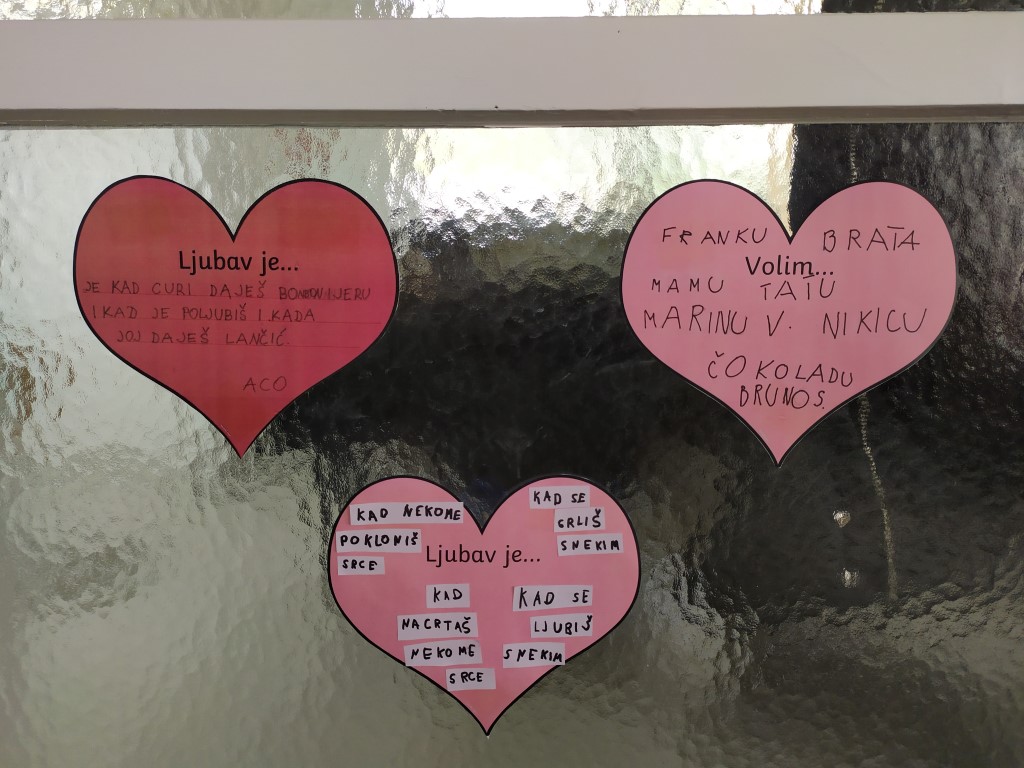 Ljubav je...
JE KAD CURI DAJEŠ
I KAD JE POLJUBIŠ I KADA
JOJ DAJEŠ LANČIĆ.
ACO
FRANKU BRATA
Volim...
MAMU TATU
MARINU V. NIKICU
ČOKOLADU
BRUNO S.
KAD NEKOME
POKLONIŠ
SRCE
KAD SE
GRLIŠ
SNEKIM
Ljubav je...
KAD
NACRTAŠ
NEKOME
SRCE
KAD SE
LJUBIŠ
SNEKIM